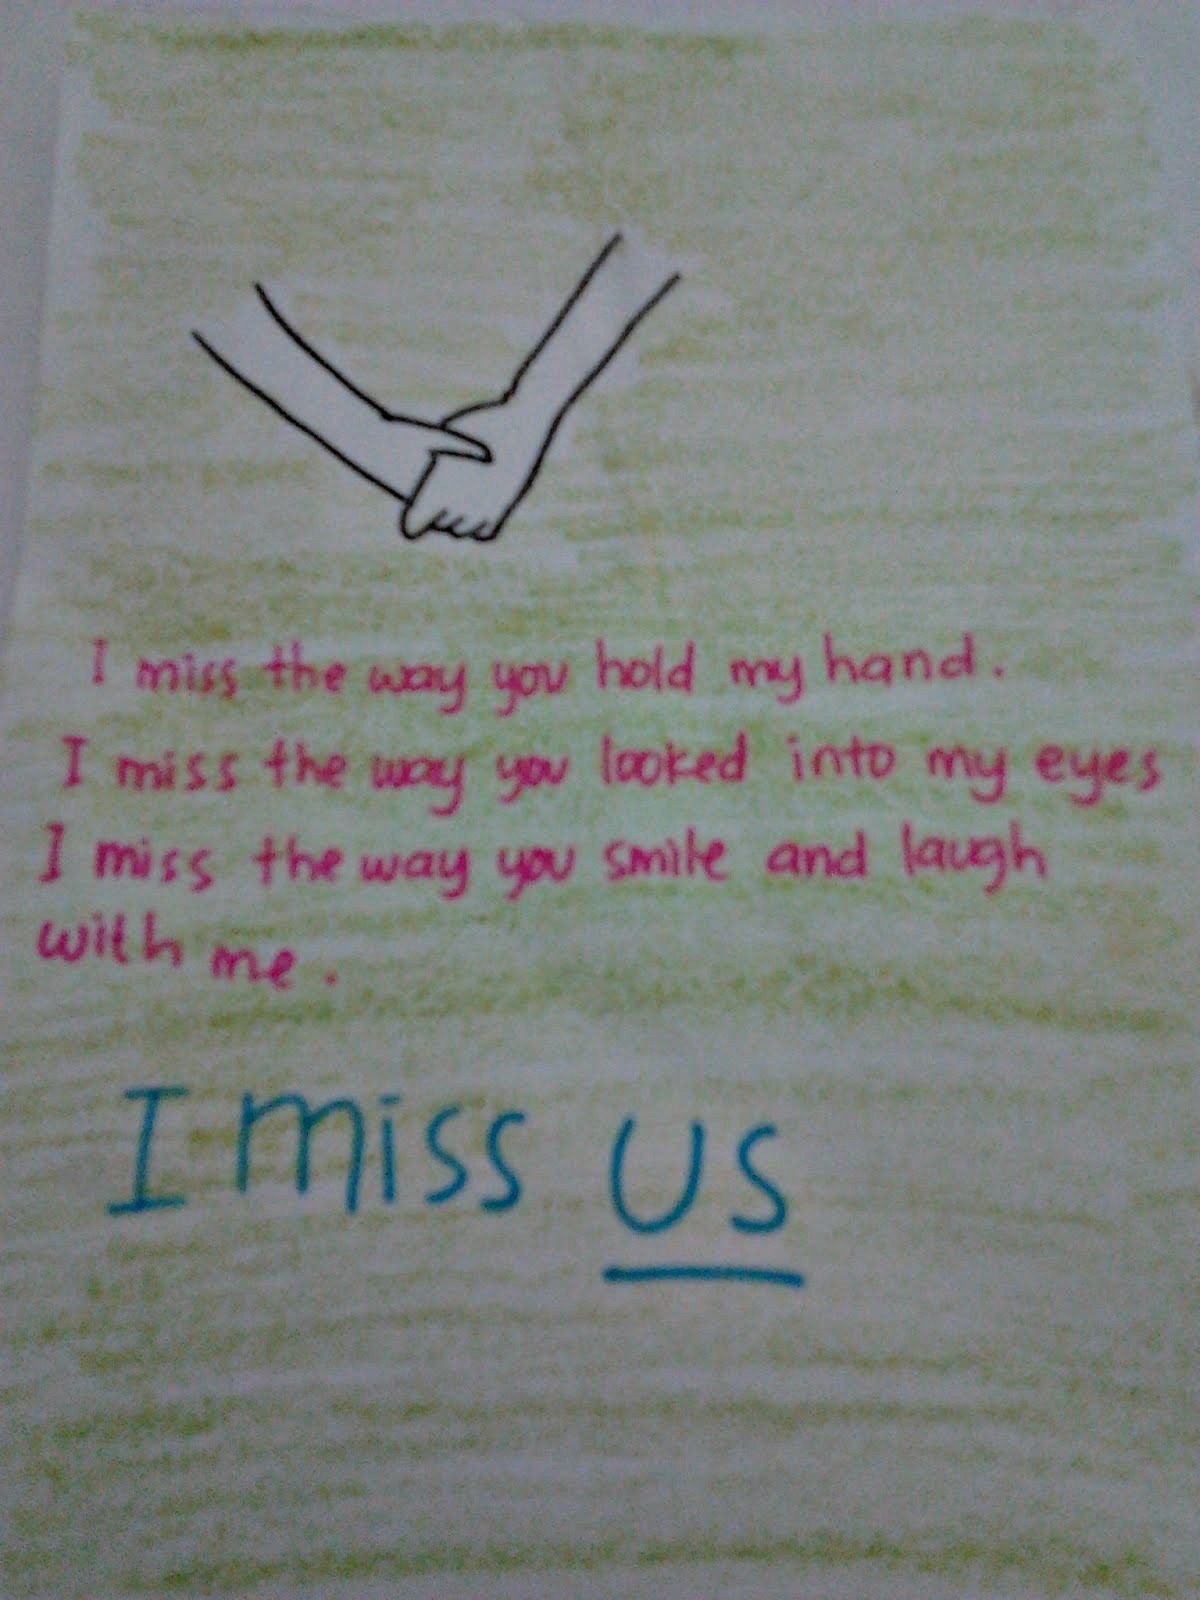 I miss the way you hold my hand.
I miss the way you looked into my eyes
I miss the way you smile and laugh
with me.
I miss us